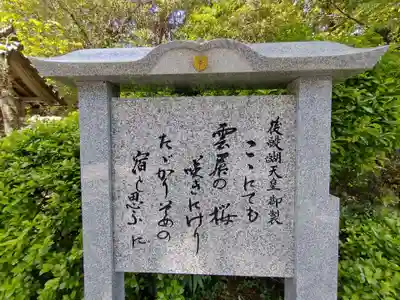 後醍醐天皇御製
ここにても
雲居の桜
咲きにけり
たゞかりそめの
宿と思ふに